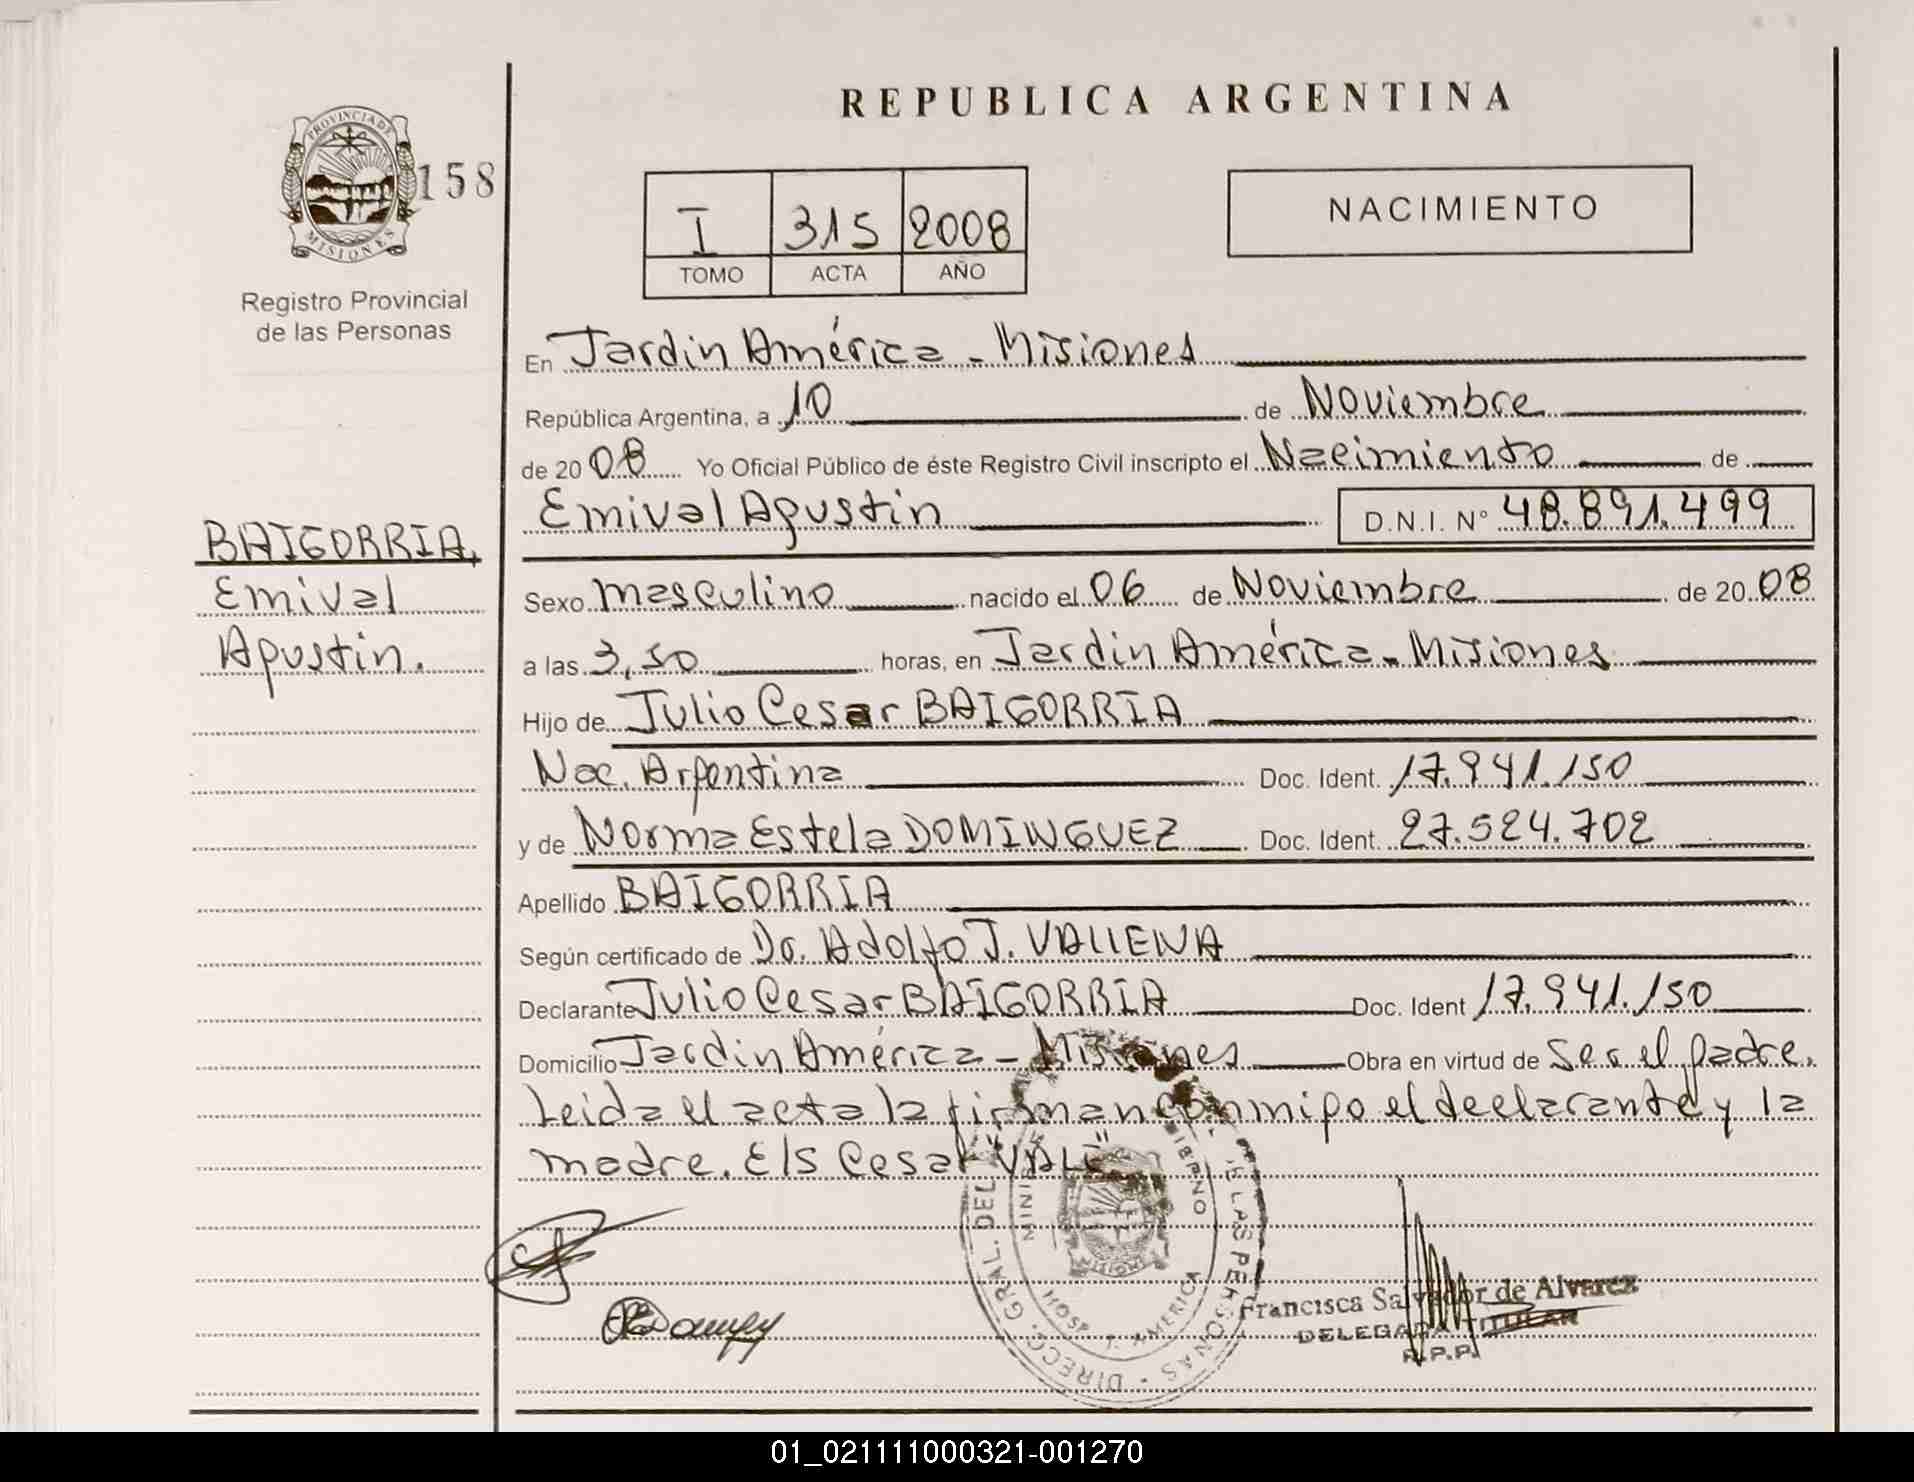 REPUBLICA ARGENTINA
PROVINCIA DE
MISIONES
158
Registro Provincial
de las Personas
I 315 2008
TOMO ACTA AÑO
NACIMIENTO
En Jardin América - Misiones
República Argentina, a 10 de Noviembre
de 2008 Yo Oficial Público de éste Registro Civil inscripto el Nacimiento de
Emival Agustin D.N.I. N° 48.891.499
BAIGORRIA,
Emival
Agustin.
Sexo masculino nacido el 06 de Noviembre de 2008
a las 3,50 horas, en Jardin América - Misiones
Hijo de Julio Cesar BAIGORRIA
Nac. Argentina Doc. Ident. 17.941.150
y de Norma Estela DOMINGUEZ Doc. Ident. 27.524.702
Apellido BAIGORRIA
Según certificado de Dr. Adolfo J. VALLENA
Declarante Julio Cesar BAIGORRIA Doc. Ident 17.941.150
Domicilio Jardin América - Misiones Obra en virtud de Ser el padre.
Leida el acta la firman conmigo el declarante y la
madre. E/s Cesar "VALE"
DIRECC. GRAL. DEL DE LAS PERSONAS
HOSP. J. AMERICA
Francisca Salvador de Alvarez
DELEGADA TITULAR
R.P.P.
01_021111000321-001270